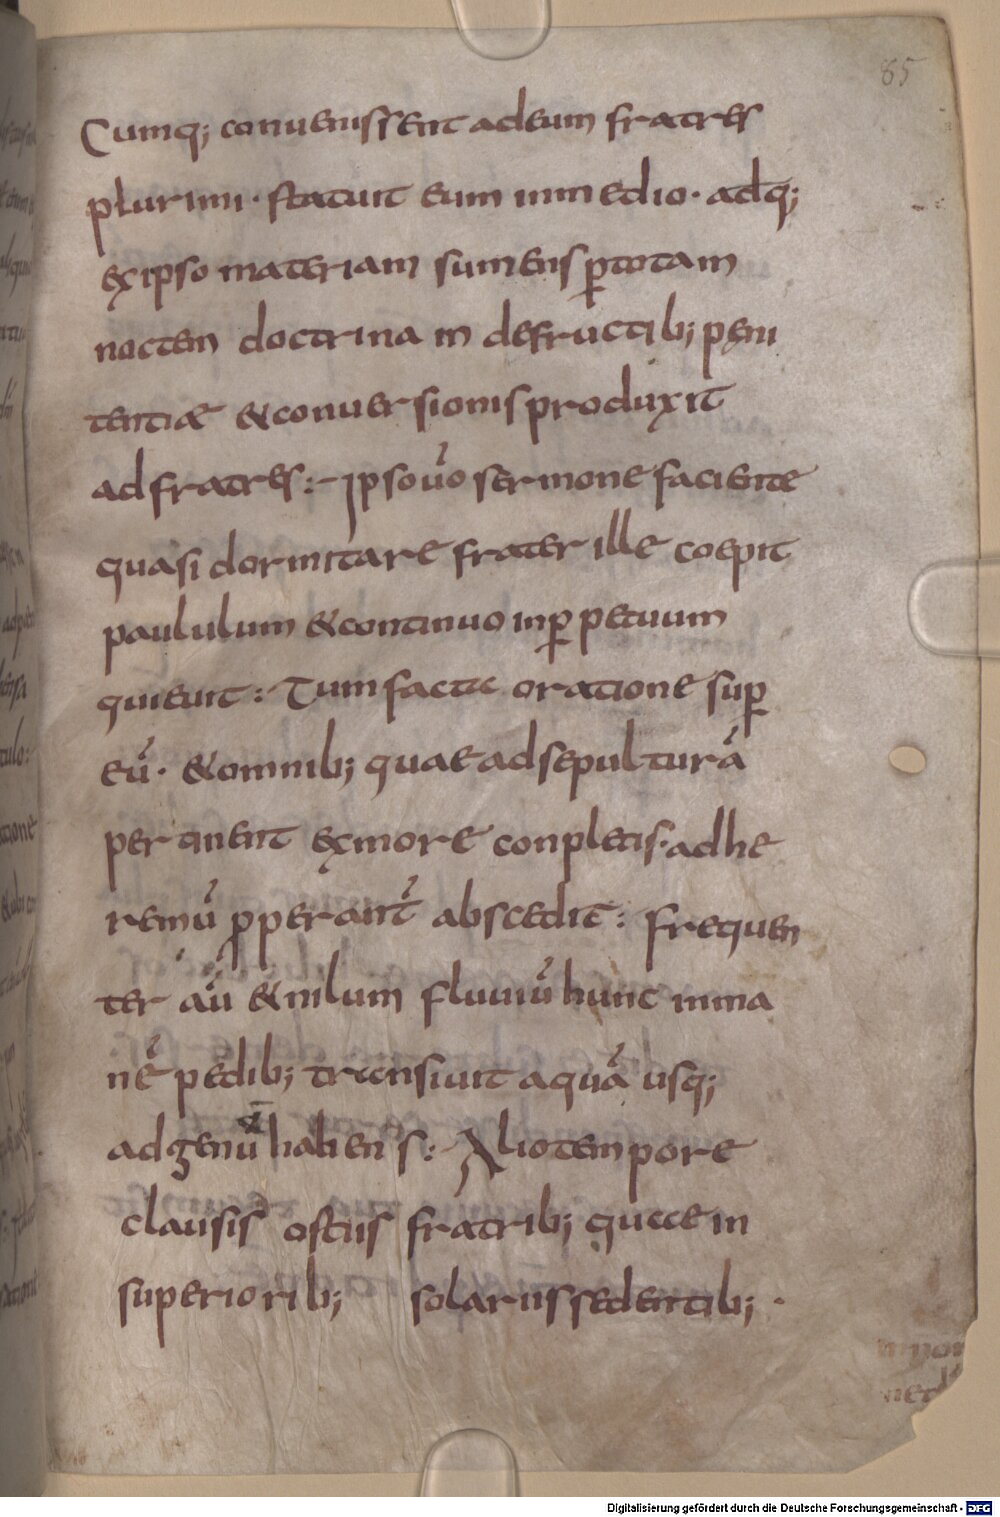 85
Cumq; conuenissent ad eum fratres
plurimi · statuit eum in medio · adq;
ex ipso materiam sumens ꝑ totam
noctem doctrinam de fructib; peni
tentiæ & conuersionis produxit
ad fratres :- Ipso ũo sermone faciente
quasi dormitare frater ille coepit
paululum & continuo inꝑpetuum
quieuit : Tum facta oratione suꝑ
eũ · & omnib; quae ad sepulturã
pertinent ex more conpletis · ad he
remũ ꝓperant̃ abscedit̃ : Frequen
ter aũ & nilum fluuiũ hunc inma
nẽ pedib; transiuit aquã usq;
ad genũ habens :- Alio tempore
clausis ostiis fratrib; quae in
superiorib; solariis sedentib; ·
Digitalisierung gefördert durch die Deutsche Forschungsgemeinschaft - DFG